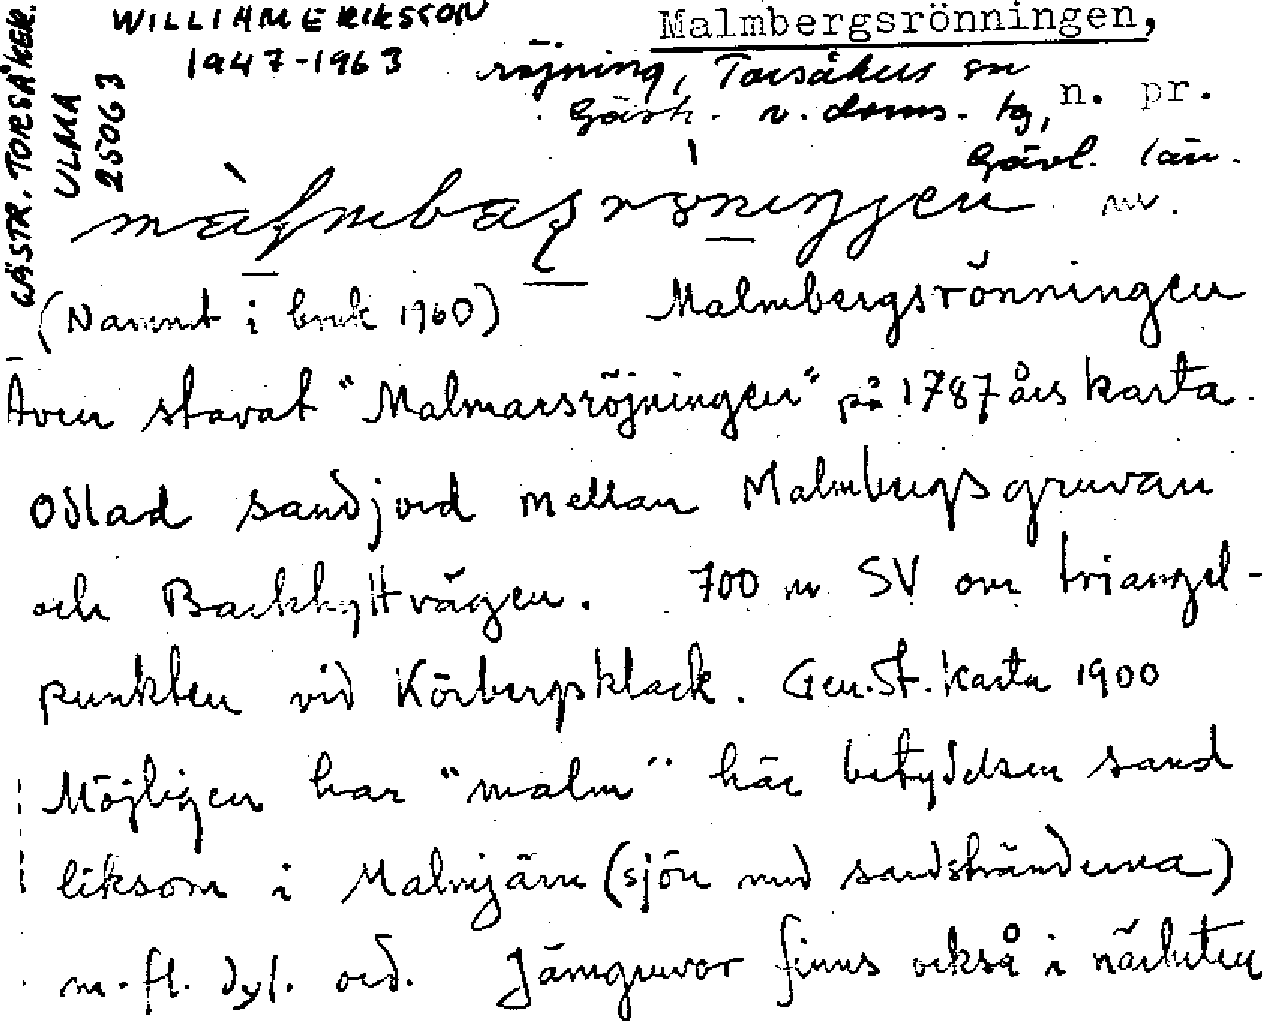 GÄSTR. TORSÅKER.
ULMA
25063
WILLIAM ERIKSSON
1947-1963
Malmbergsrönningen,
röjning, Torsåkers sn
Gästr. v. doms. tg, n. pr.
Gävl. län.
(Namnet i bruk 1960) Malmbergsrönningen
Även stavat "Malmarsröjningen" på 1787 års karta.
Odlad sandjord mellan Malmbergsgruvan
och Backhyttvägen. 700 m SV om triangel-
punkten vid Körbergsklack. Gen.St.karta 1900
Möjligen har "malm" här betydelsen sand
liksom i Malmjärn (sjön med sandstränderna)
m.fl. dyl. ord. Järngruvor finns också i närheten